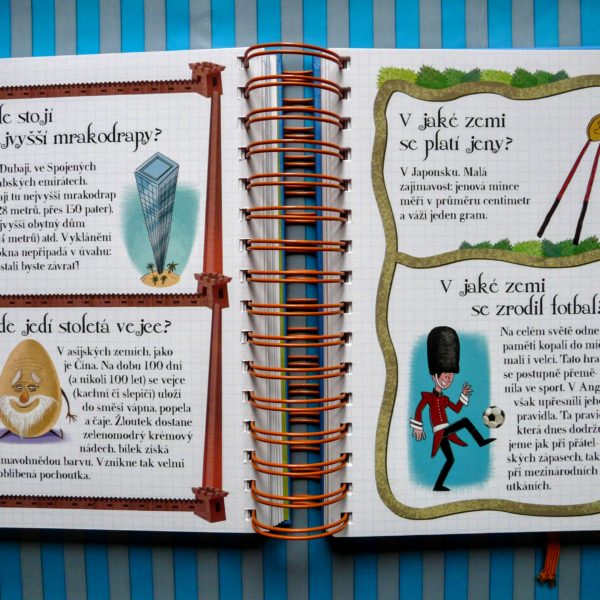 de stojí
jvyšší mrakodrapy?
Dubaji, ve Spojených
abských emirátech.
ají tu nejvyšší mrakodrap
28 metrů, přes 150 pater),
jvyšší obytný dům
4 metrů) atd. Vyklánění
okna nepřipadá v úvahu:
stali byste závrať!
de jedí stoletá vejce?
V asijských zemích, jako
je Čína. Na dobu 100 dní
(a nikoli 100 let) se vejce
(kachní či slepičí) uloží
do směsi vápna, popela
a čaje. Žloutek dostane
zelenomodrý krémový
nádech, bílek získá
mavohnědou barvu. Vznikne tak velmi
oblíbená pochoutka.
V jaké zemi
se platí jeny?
V Japonsku. Malá
zajímavost: jenová mince
měří v průměru centimetr
a váží jeden gram.
V jaké zemi
se zrodil fotbal?
Na celém světě odne
paměti kopali do míč
malí i velcí. Tato hra
se postupně přemě
nila ve sport. V Ang
však upřesnili jeho
pravidla. Ta pravid
která dnes dodržu
jeme jak při přátel
ských zápasech, tak
při mezinárodních
utkáních.